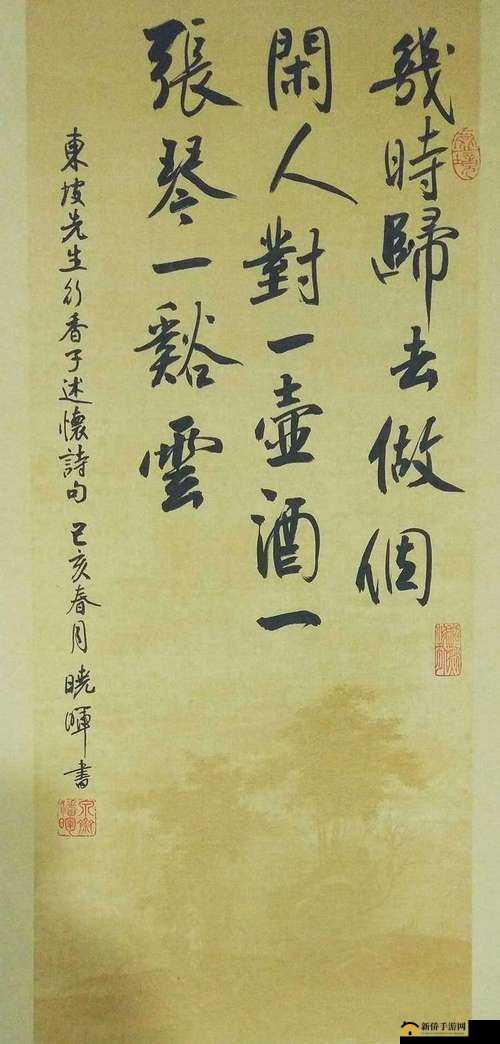 幾時歸去做個
閑人對一壺酒一
張琴一谿雲
東坡先生行香子述懷詩句 己亥春月 曉暉書
新侨手游网